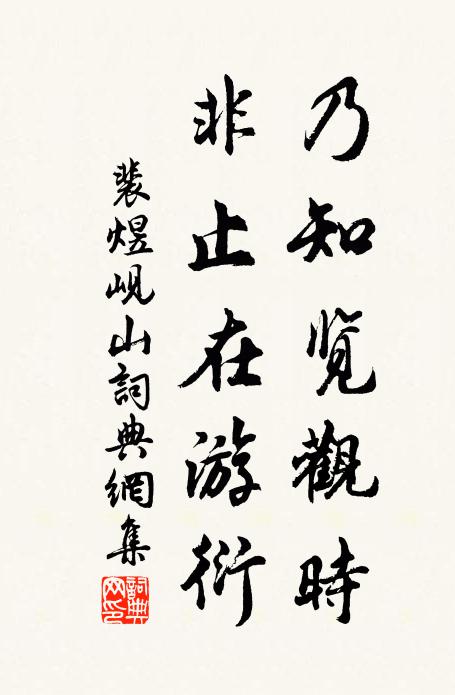 乃知览觀時
非止在游衍
裴煜峴山詞典網集
詞典
网印